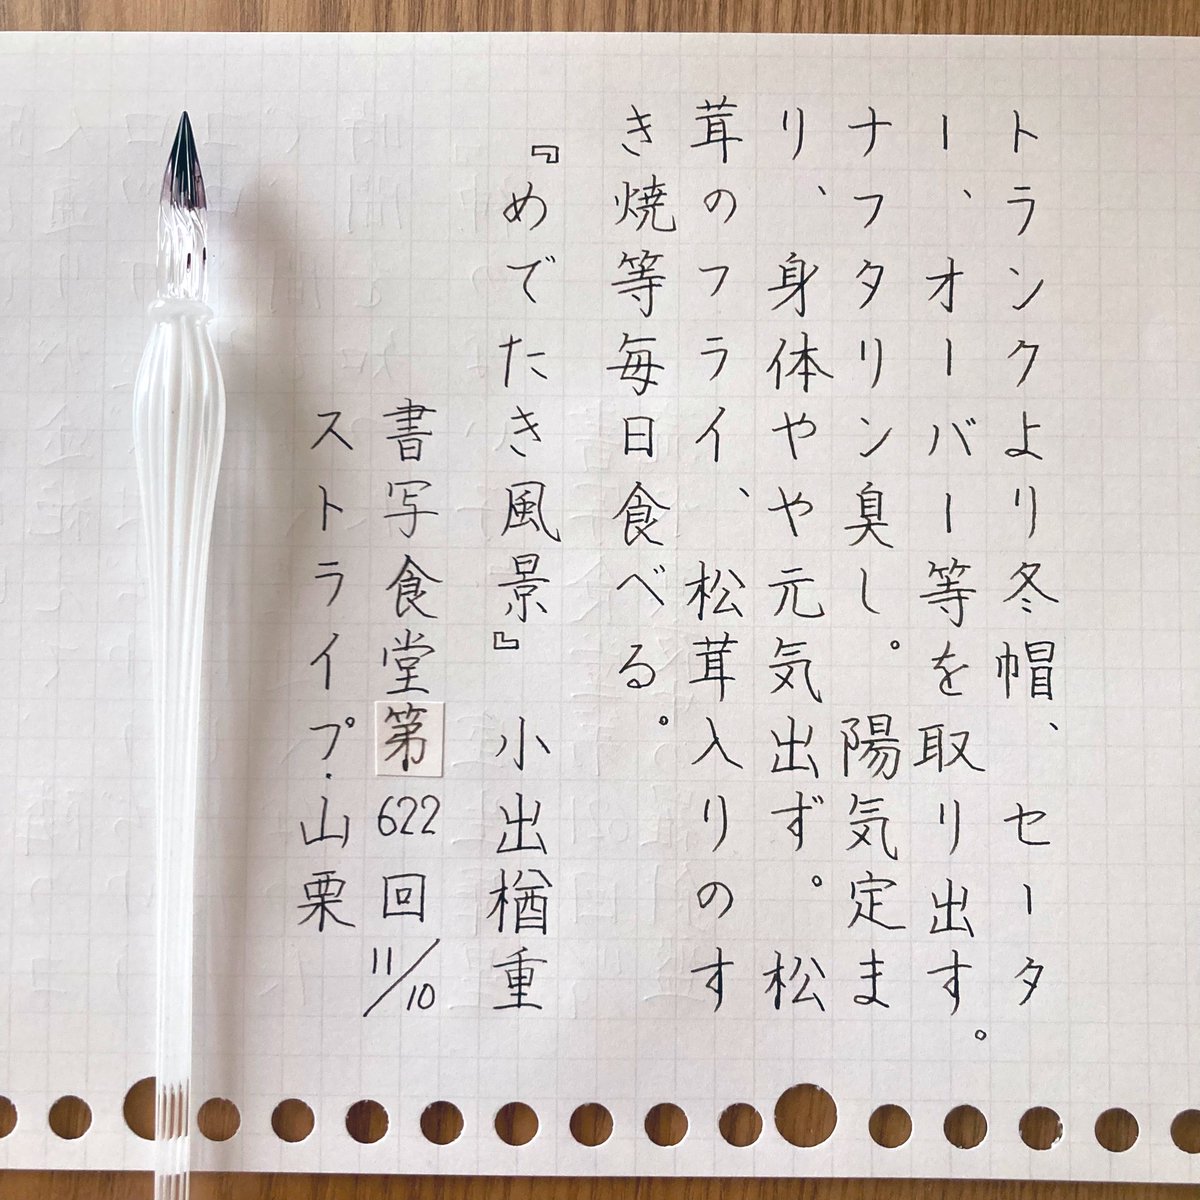 トランクより冬帽、セータ
ー、オーバー等を取り出す。
ナフタリン臭し。陽気定ま
り、身体やや元気出ず。松
茸のフライ、松茸入りのす
き焼等毎日食べる。
『めでたき風景』小出楢重
書写食堂第622回11/10
ストライプ・山栗